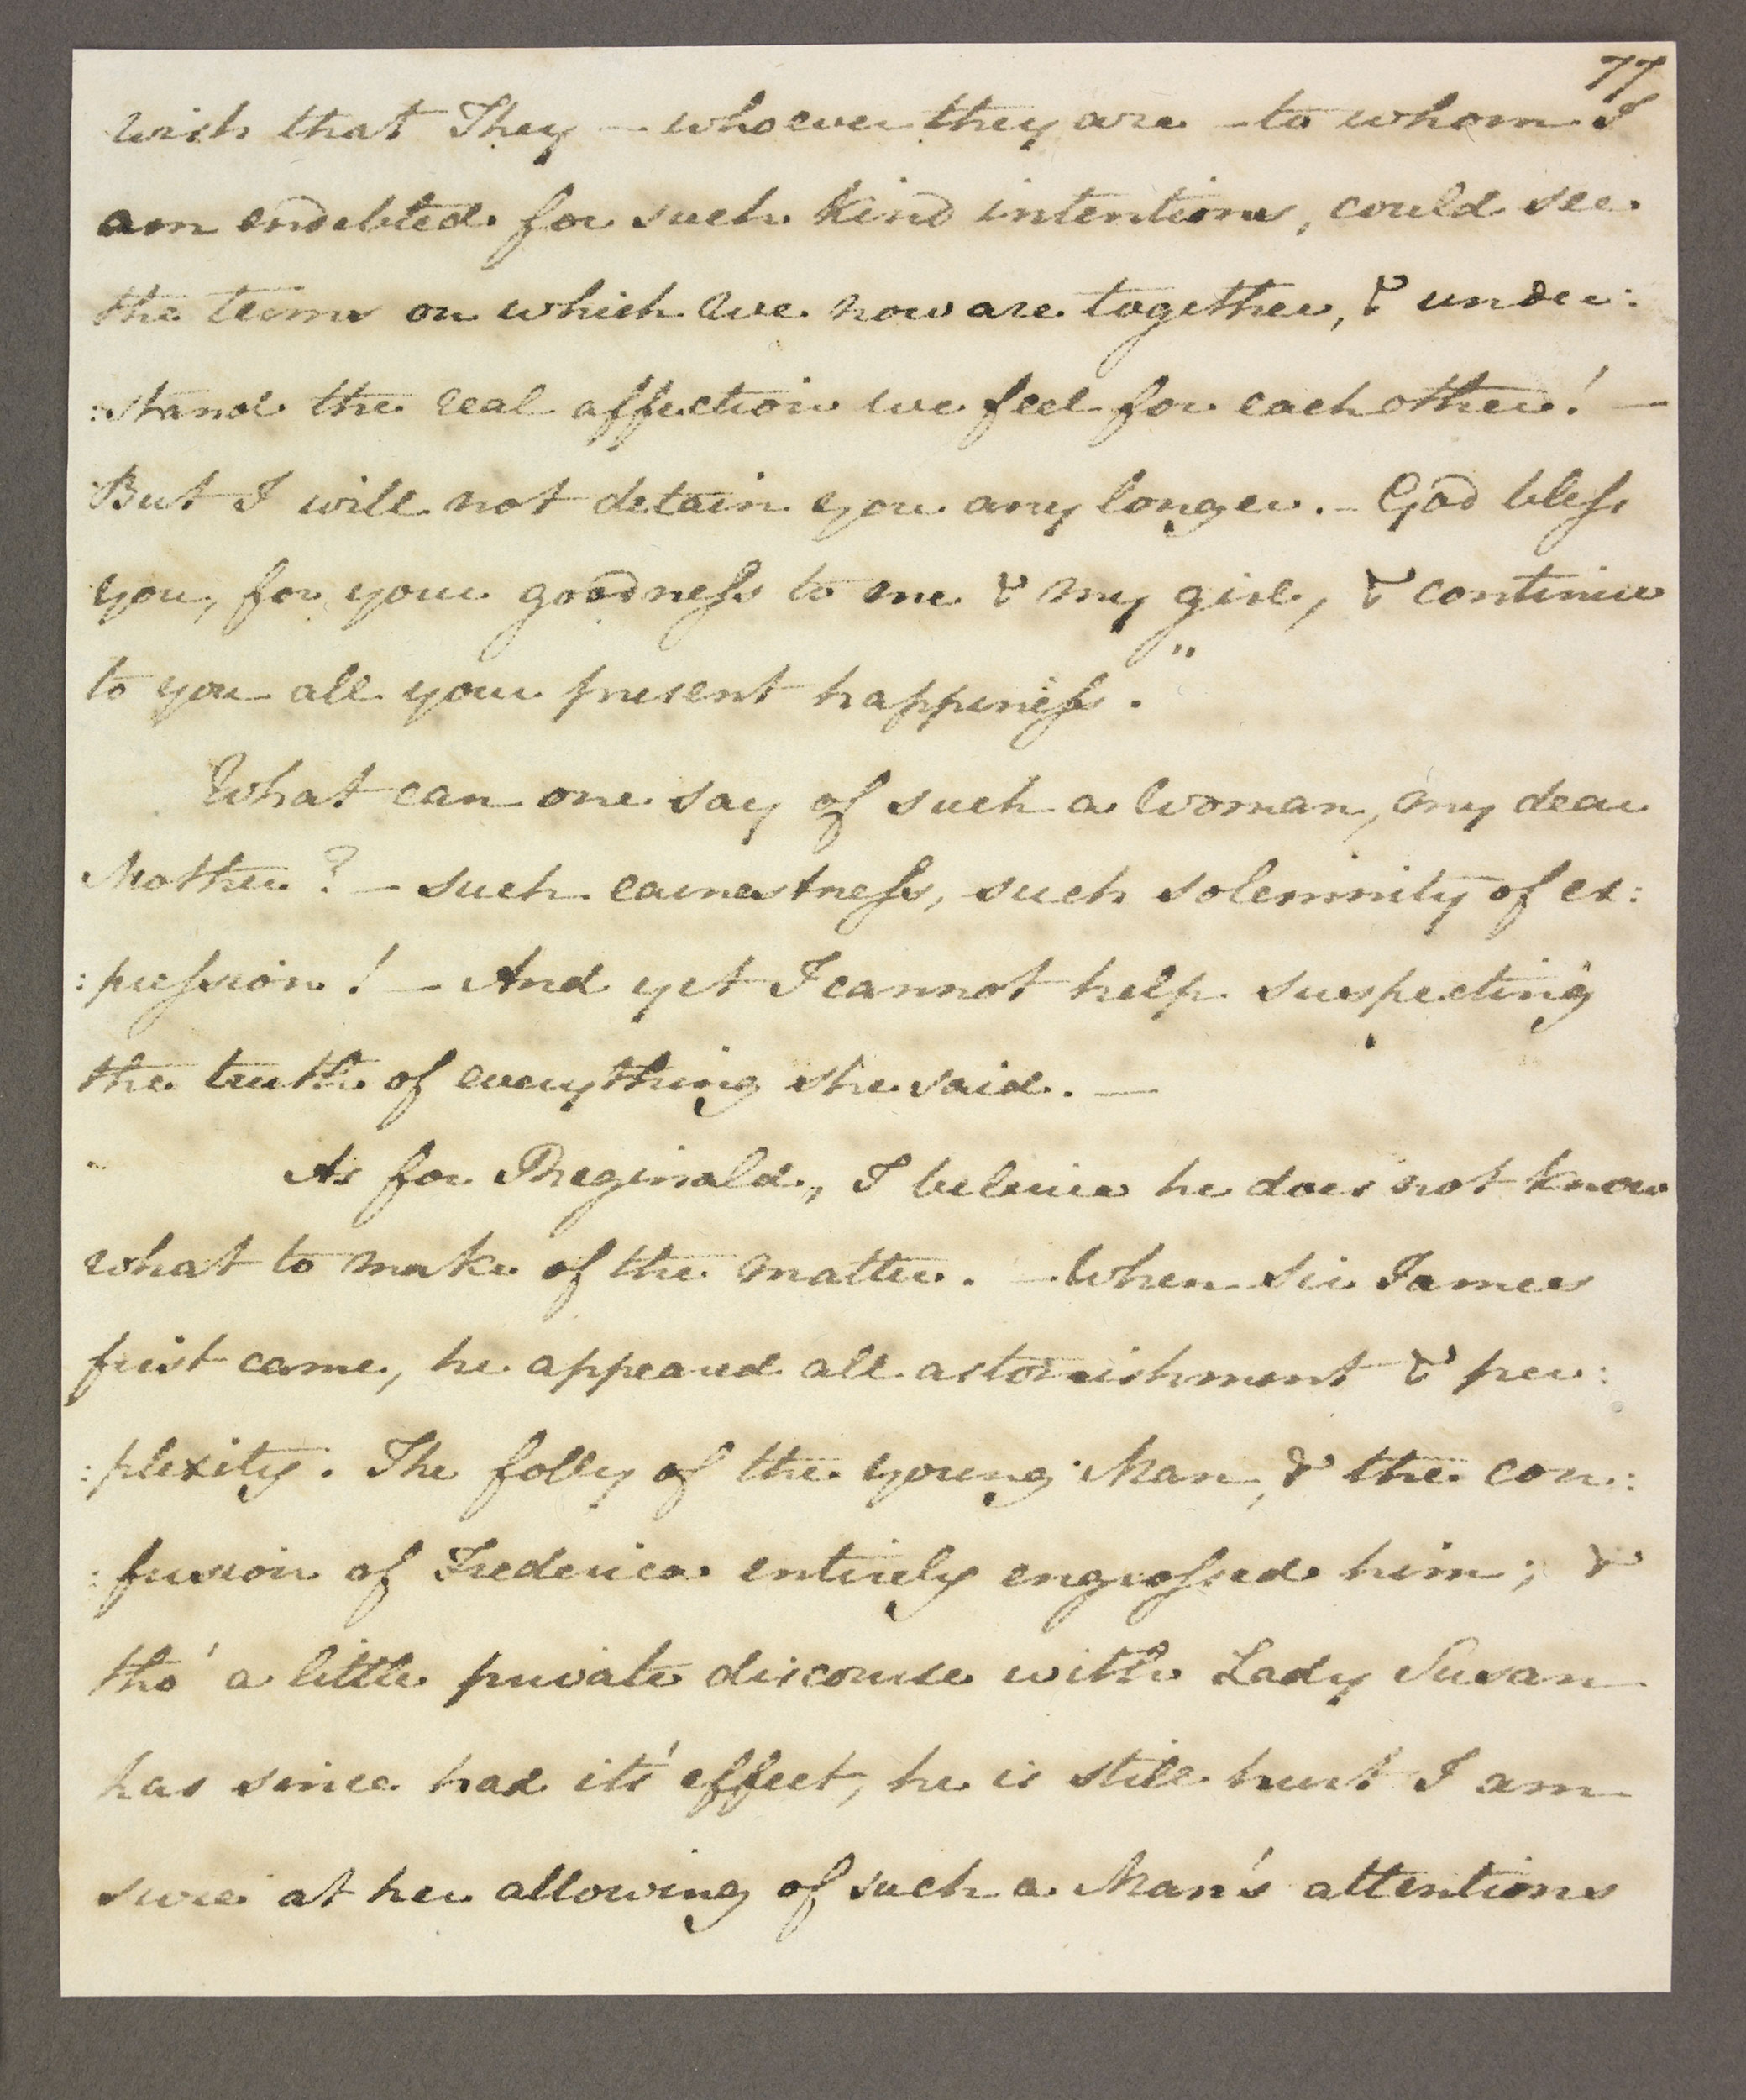 77
wish that They – whoever they are – to whom I
am endebted for such kind intentions, could see
the terms on which we now are together, & under:
:stand the real affection we feel for each other! —
But I will not detain you any longer. – God bless
you, for your goodness to me & my girl, & continue
to you all your present happiness."
What can one say of such a Woman, my dear
Mother? – such earnestness, such solemnity of ex:
:pression! – And yet I cannot help suspecting
the truth of everything she said. —
As for Reginald, I beleive he does not know
what to make of the matter. – When Sir James
first came, he appeared all astonishment & per:
:plexity. The folly of the young Man, & the con:
:fusion of Frederica entirely engrossed him; &
tho' a little private discourse with Lady Susan
has since had it's effect, he is still hurt I am
sure at her allowing of such a Man's attentions